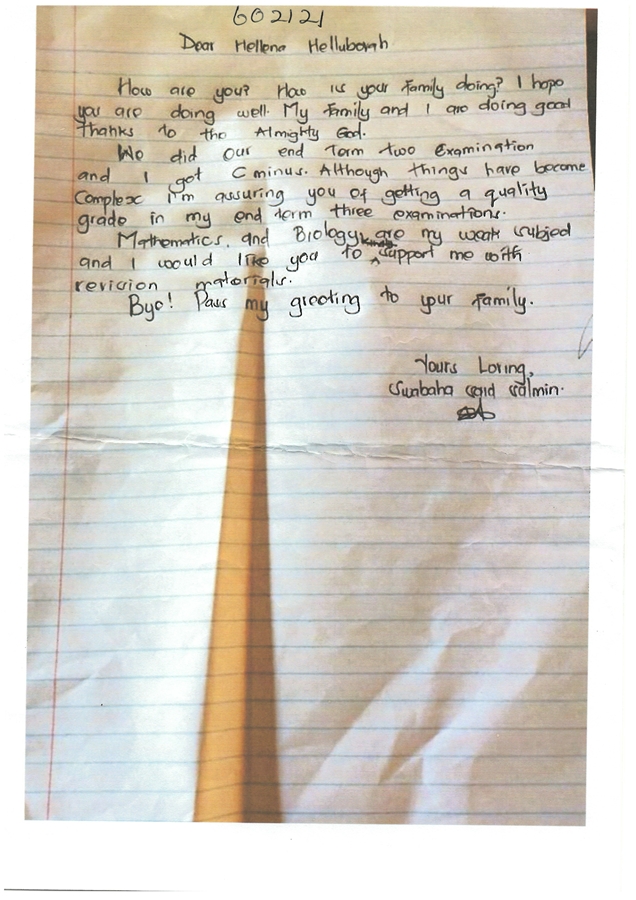 602121
Dear Hellena Helluborgh
How are you? How is your family doing? I hope
you are doing well. My family and I are doing good
thanks to the Almighty God.
We did our end term two examination
and I got C minus. Although things have become
complex I'm assuring you of getting a quality
grade in my end term three examinations.
Mathematics, and Biology are my weak subject
and I would like you to kindly support me with
revision materials.
Bye! Pass my greeting to your family.
Yours Loving,
Swabaha Said Salmin.